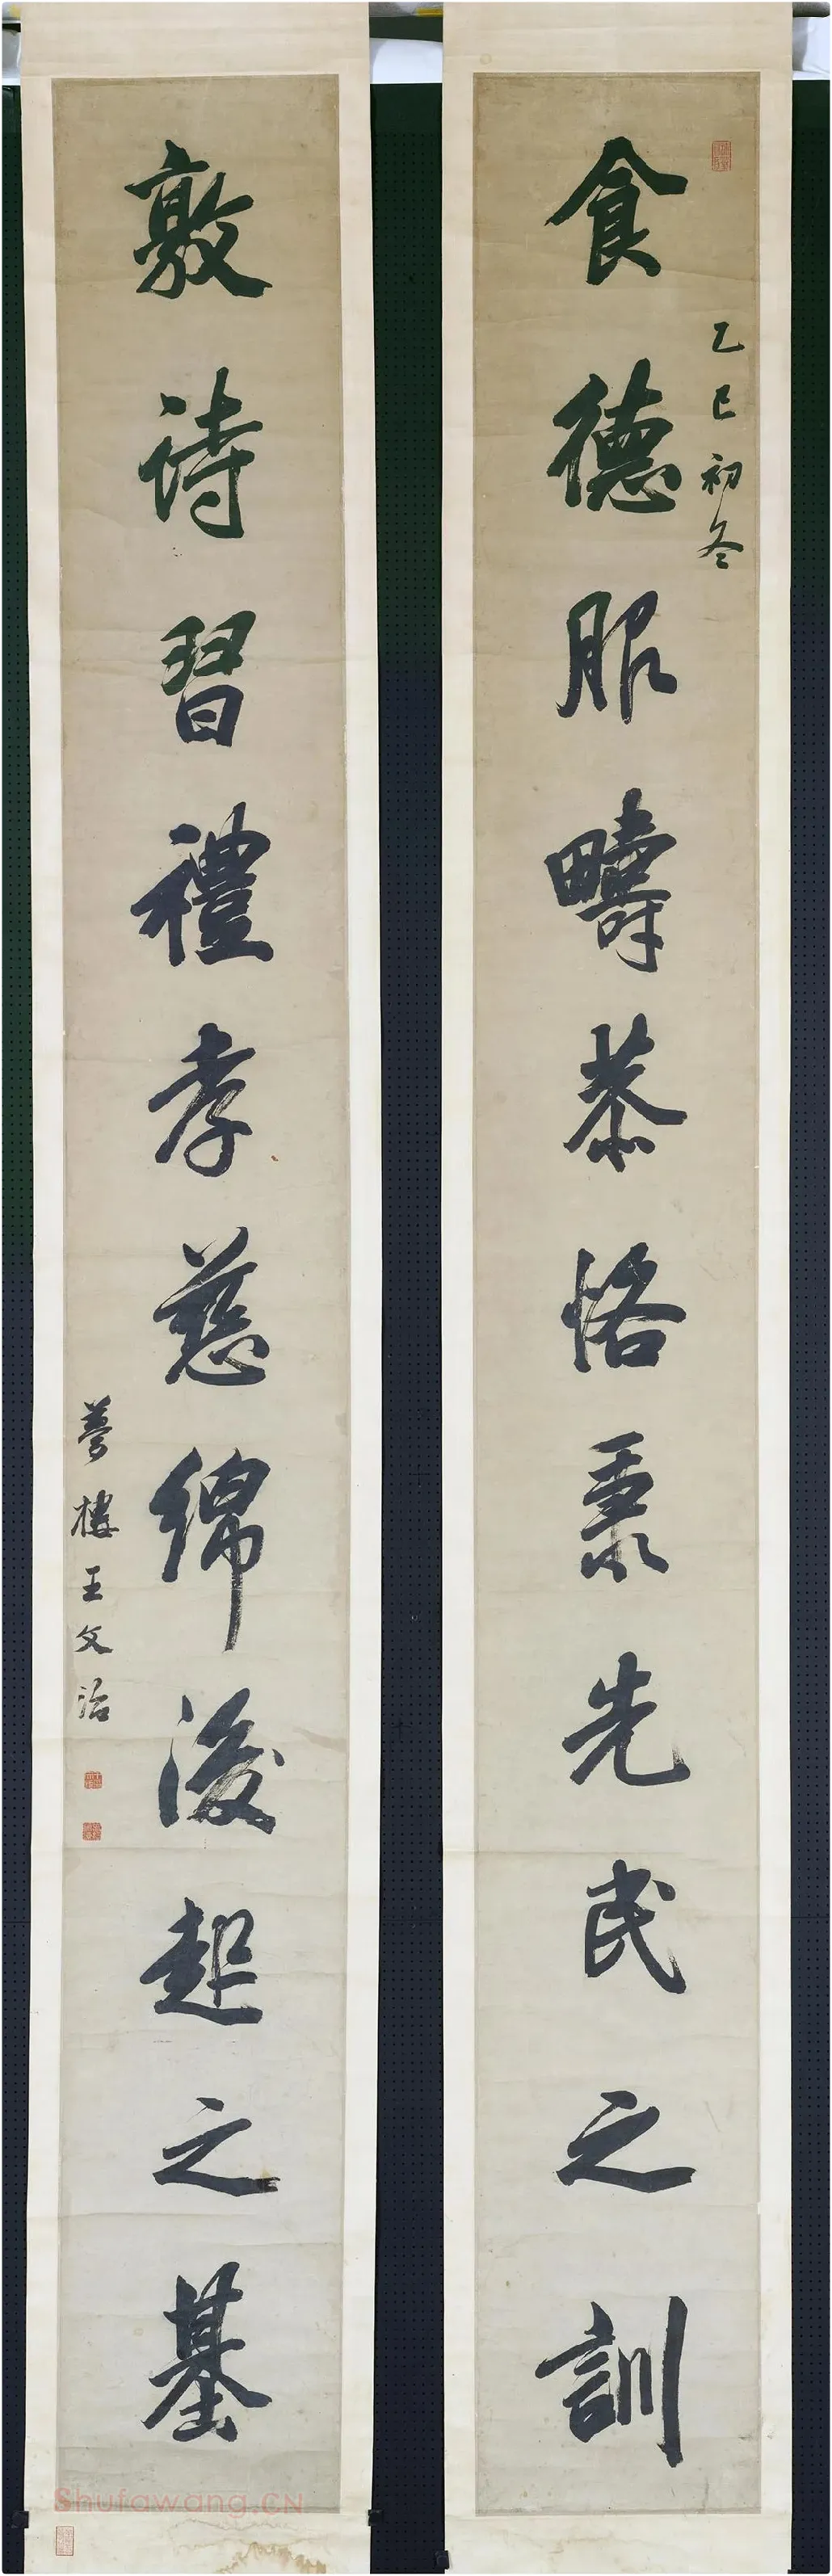 食德服疇恭恪秉先民之訓
乙巳初冬
敦詩習禮孝慈綿後起之基
夢樓王文治
Shufawang.CN